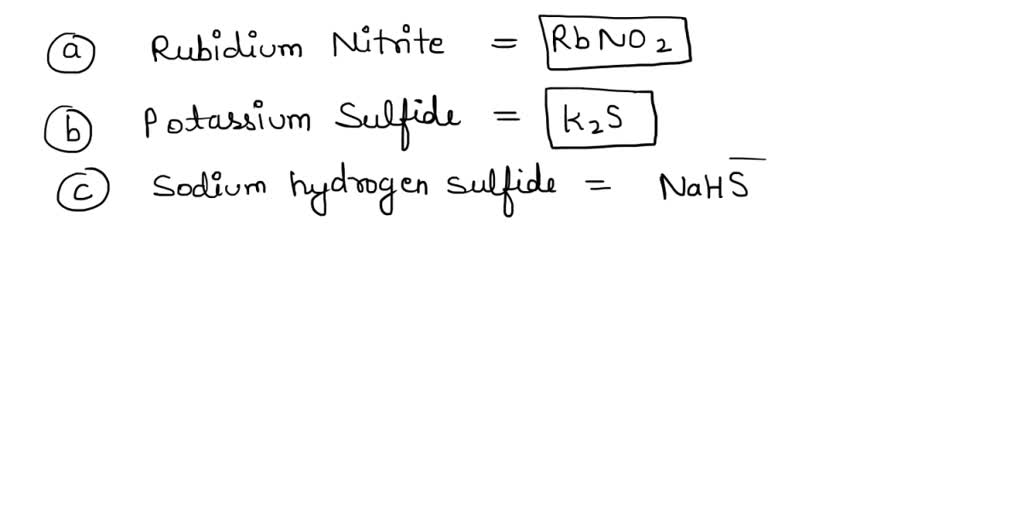 (a) Rubidium Nitrite = RbNO₂
(b) Potassium Sulfide = K₂S
(c) Sodium hydrogen sulfide = NaHS